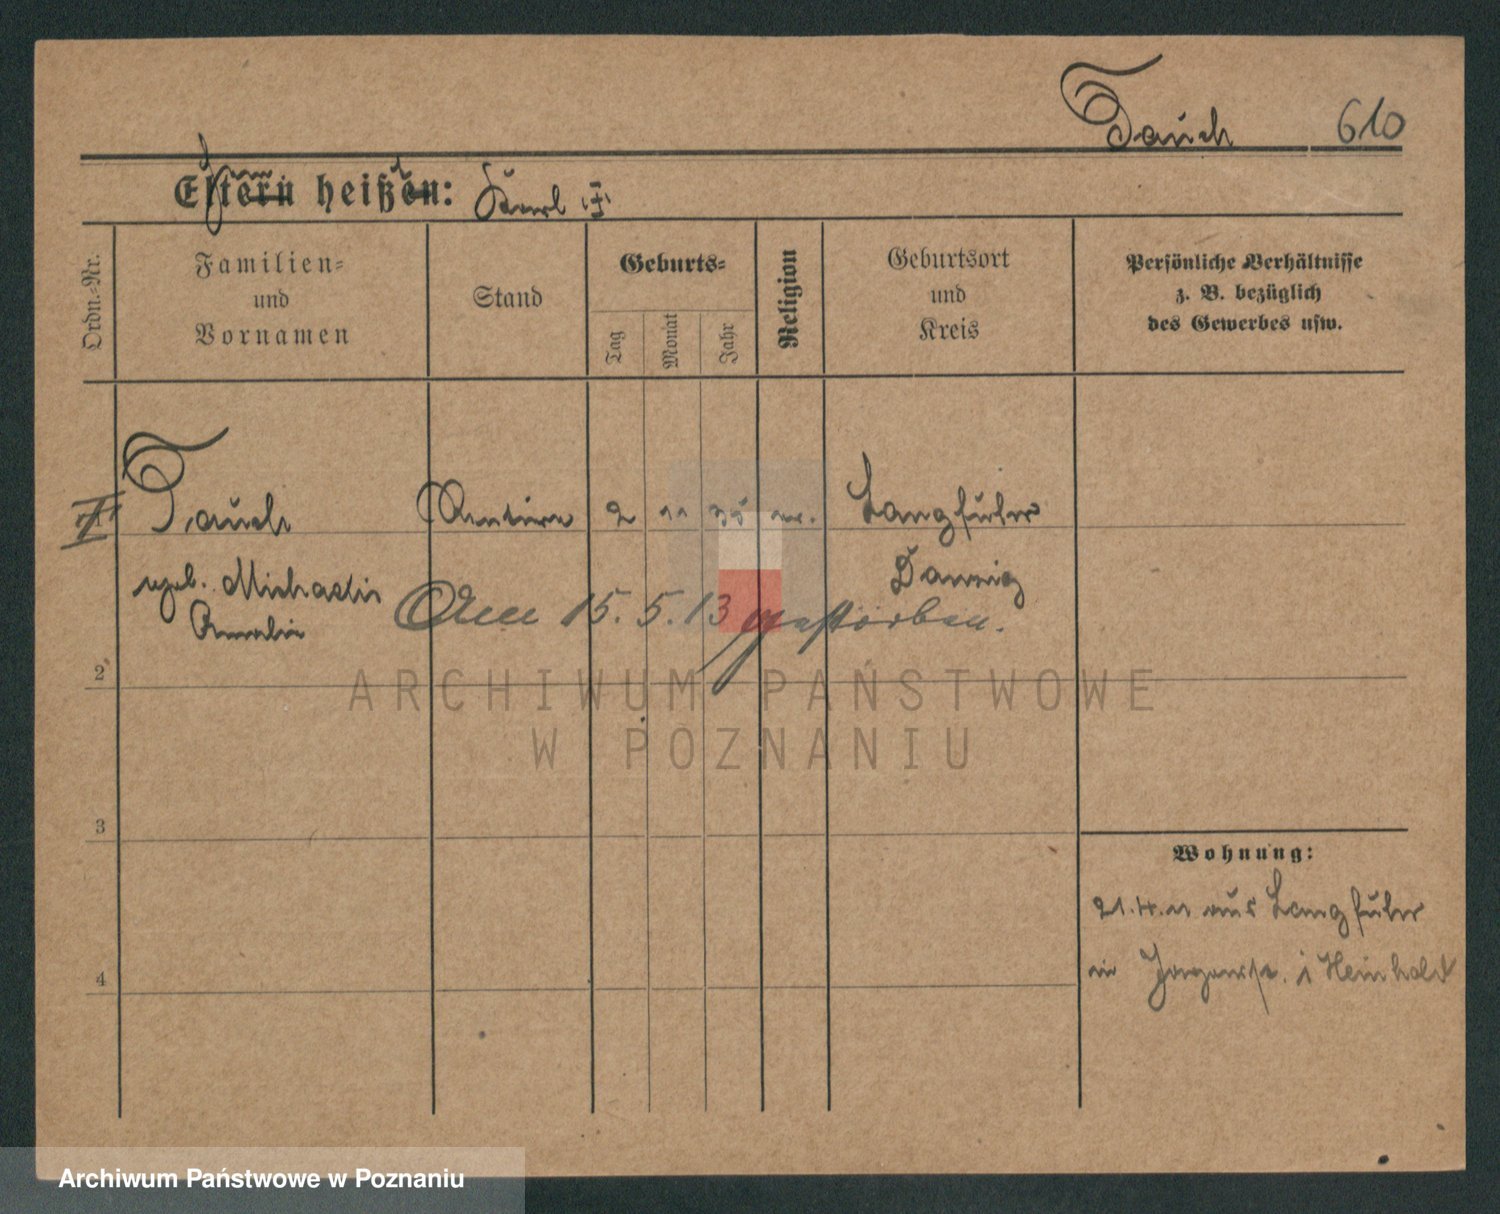 Tauch 610
Eltern heißen: Karl
Ordn.-Nr.
Familien-
und
Vornamen
Stand
Geburts-
Tag
Monat
Jahr
Religion
Geburtsort
und
Kreis
Persönliche Verhältnisse
z. B. bezüglich
des Gewerbes usw.
Tauch 2 11 35 Langfuhr
geb. Danzig
Amalie
Am 15.5.13 gestorben.
2
3
4
Wohnung:
21.4.11 aus Langfuhr
in
ARCHIWUM PAŃSTWOWE
W POZNANIU
Archiwum Państwowe w Poznaniu